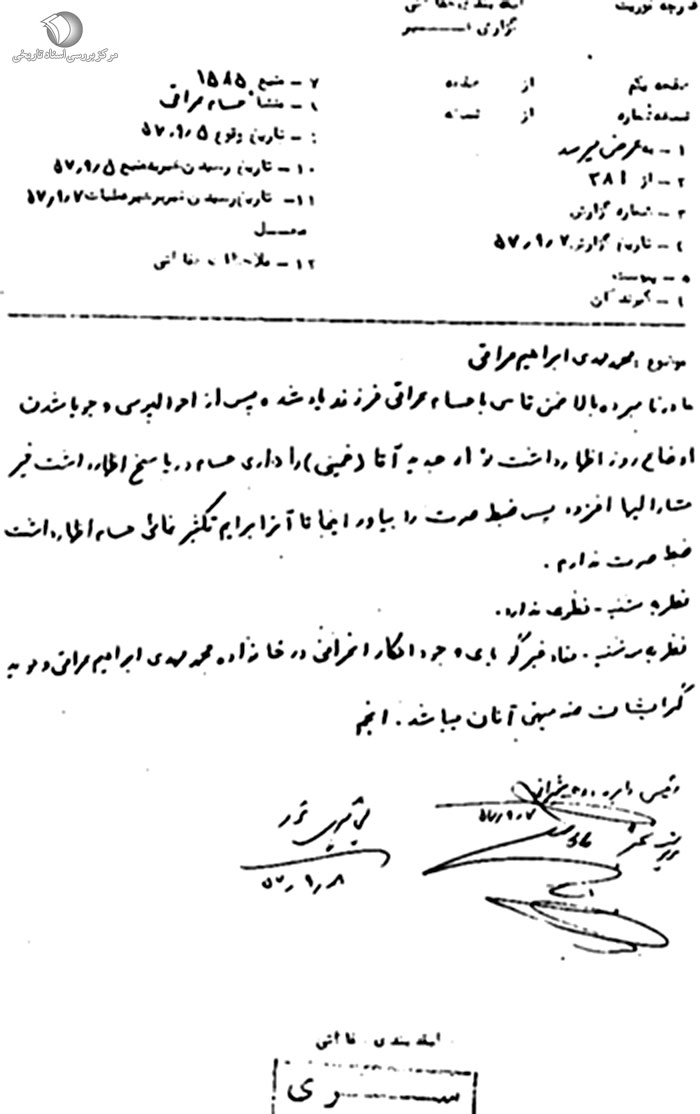 مرکز بررسی اسناد تاریخی
درجه فوریت
طبقه بندی حفاظتی
گزارش خبر
صفحه یکم از صفحه
نسخه شماره از نسخه
۱ - به عرض میرسد
۲ - از ۳۸۱
۳ - شماره گزارش
۴ - تاریخ گزارش ۵۷٫۹٫۷
۵ - پیوست
۶ - گیرندگان
۷ - منبع ۱۵۸۵
۸ - منشا حسام عراقی
۹ - تاریخ وقوع ۵۷٫۹٫۵
۱۰ - تاریخ رسیدن خبر به منبع ۵۷٫۹٫۵
۱۱ - تاریخ رسیدن خبر به رهبر عملیات ۵۷٫۹٫۷
محل
۱۲ - ملاحظات حفاظتی
موضوع : محمد مهدی ابراهیم عراقی
مادر نامبرده بالا ضمن تماس با حسام عراقی فرزند یاد شده پس از احوالپرسی و جویا شدن
اوضاع روز اظهار داشت نوار جدید آقا (خمینی) را داری حسام در پاسخ اظهار داشت خیر
مشارالیها افزود پس ضبط صوت را بیاور اینجا تا آنرا برایم تکثیر نمائی حسام اظهار داشت
ضبط صوت ندارم .
نظریه شنبه - نظری ندارد .
نظریه سه شنبه - مفاد خبر گویای وجود افکار انحرافی در خانواده محمد مهدی ابراهیم عراقی و موید
گرایشات ضد میهنی آنان میباشد . انجم
رئیس دایره
۵۷٫۹٫۷
۵۷٫۹٫۸
طبقه بندی حفاظتی
سری